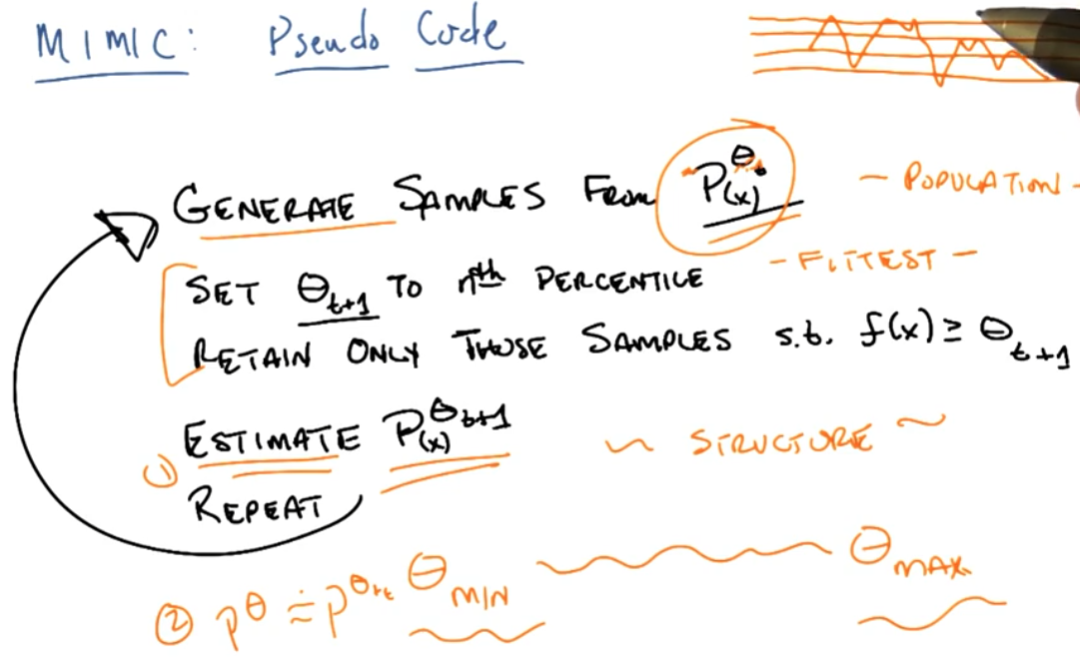 MIMIC: Pseudo Code
GENERATE SAMPLES FROM P^θ(x) - POPULATION -
- FITTEST -
SET θ_t+1 TO nth PERCENTILE
RETAIN ONLY THOSE SAMPLES s.t. f(x) ≥ θ_t+1
ESTIMATE P^θt+1(x) ~ STRUCTURE ~
①
REPEAT
θ_MIN θ_MAX
② p^θ ≐